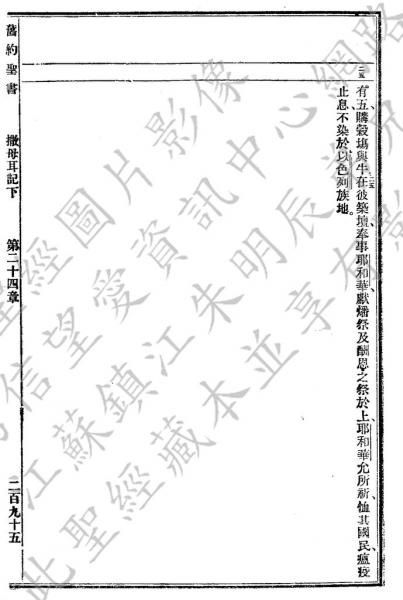 有五購穀塲與牛二五在彼築壇奉事耶和華獻燔祭及酬恩之祭於上耶和華允所祈恤其國民瘟疫
止息不染於以色列族地。
舊約聖書 撒母耳記下 第二十四章 二百九十五
聖經圖片影像
信望愛資訊中心網路
江蘇鎮江朱明辰
此聖經藏本並享有影